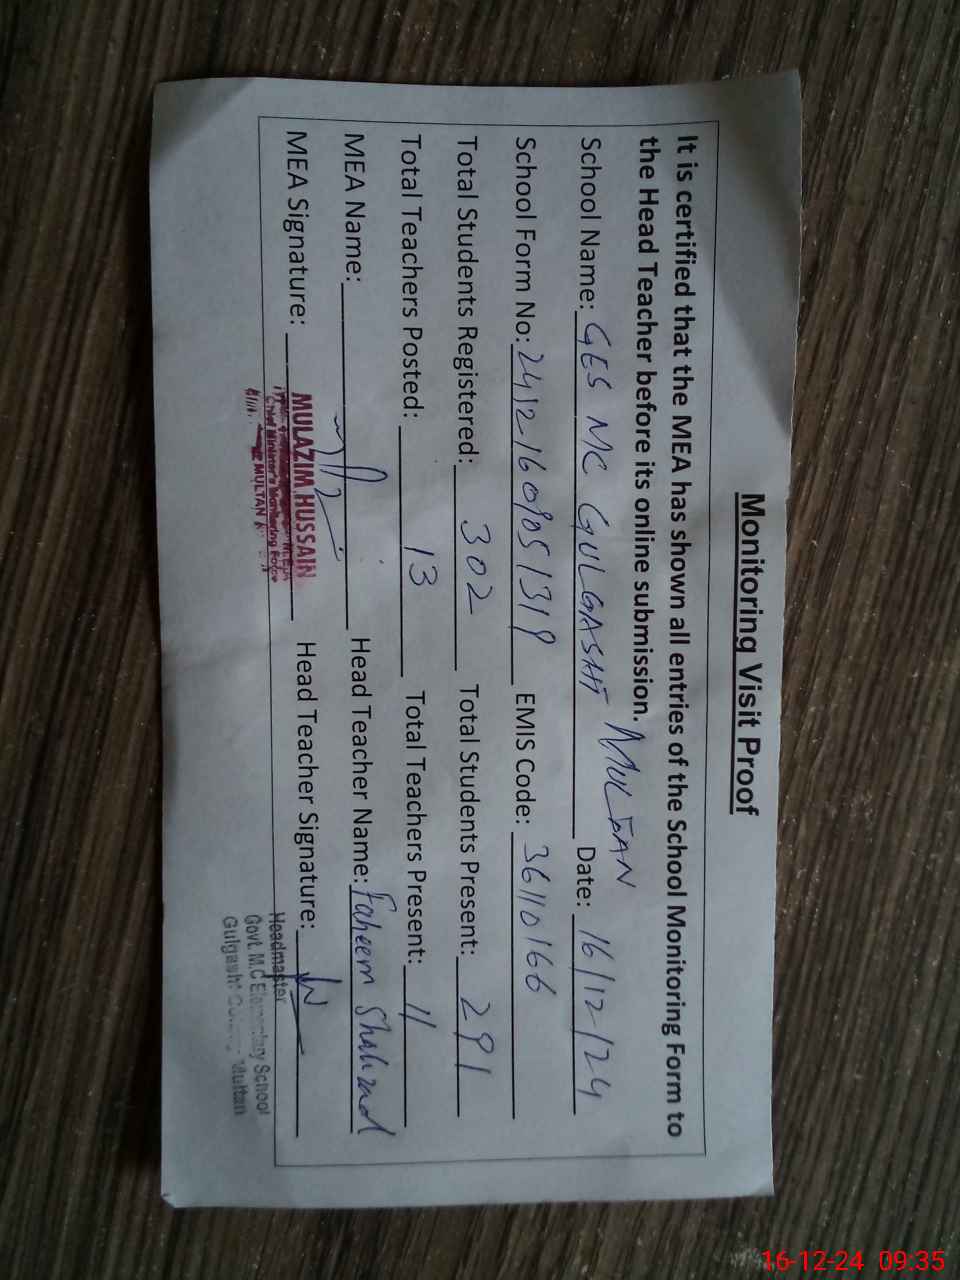 Monitoring Visit Proof
It is certified that the MEA has shown all entries of the School Monitoring Form to
the Head Teacher before its online submission.
School Name: GES MC GULGASHT MULTAN Date: 16/12/24
School Form No: EMIS Code: 36110166
Total Students Registered: 302 Total Students Present: 291
Total Teachers Posted: 13 Total Teachers Present: 11
MEA Name: Head Teacher Name: Faheem Shahzad
MEA Signature: Head Teacher Signature:
MULAZIM HUSSAIN
Chief Minister's Monitoring Force
MULTAN
Headmaster
Govt. M.C Elementary School
Gulgasht Multan
16-12-24 09:35